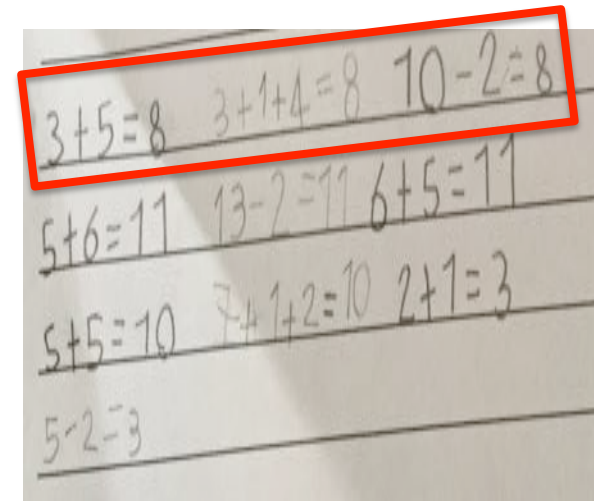 3+5=8 3+1+4=8 10-2=8
5+6=11 13-2=11 6+5=11
5+5=10 7+1+2=10 2+1=3
5-2=3